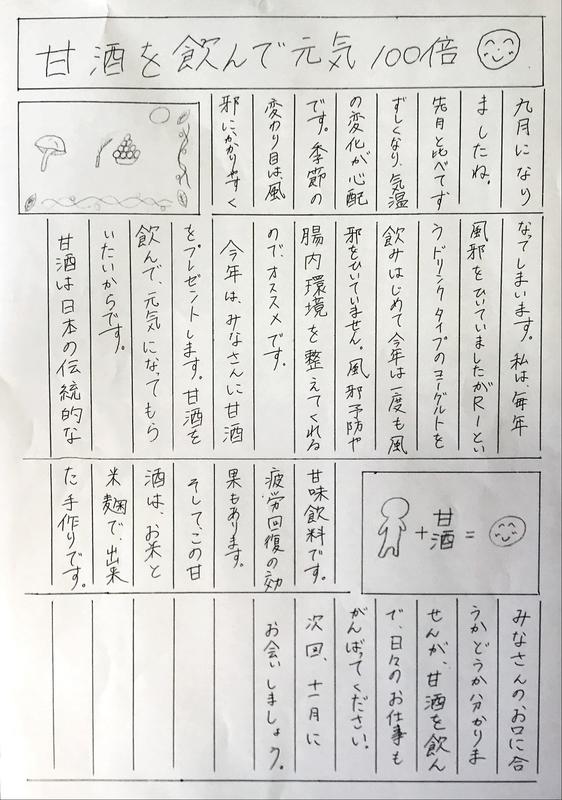 甘酒を飲んで元気100倍
九月になり
ましたね。
先月と比べてす
ずしくなり、気温
の変化が心配
です。季節の
変わり目は、風
邪にかかりやすく
なってしまいます。私は、毎年
風邪をひいていましたがR-1とい
うドリンクタイプのヨーグルトを
飲みはじめて今年は一度も風
邪をひいていません。風邪予防や
腸内環境を整えてくれる
ので、オススメです。
今年は、みなさんに甘酒
をプレゼントします。甘酒を
飲んで、元気になってもら
いたいからです。
甘酒は日本の伝統的な
甘味飲料です。
疲労回復の効
果もあります。
そして、この甘
酒は、お米と
米麹で、出来
た手作りです。
人+甘酒=
みなさんの、お口に合
うかどうか分かりま
せんが、甘酒を飲ん
で、日々のお仕事も
がんばってください。
次回、十一月に
お会いしましょう。